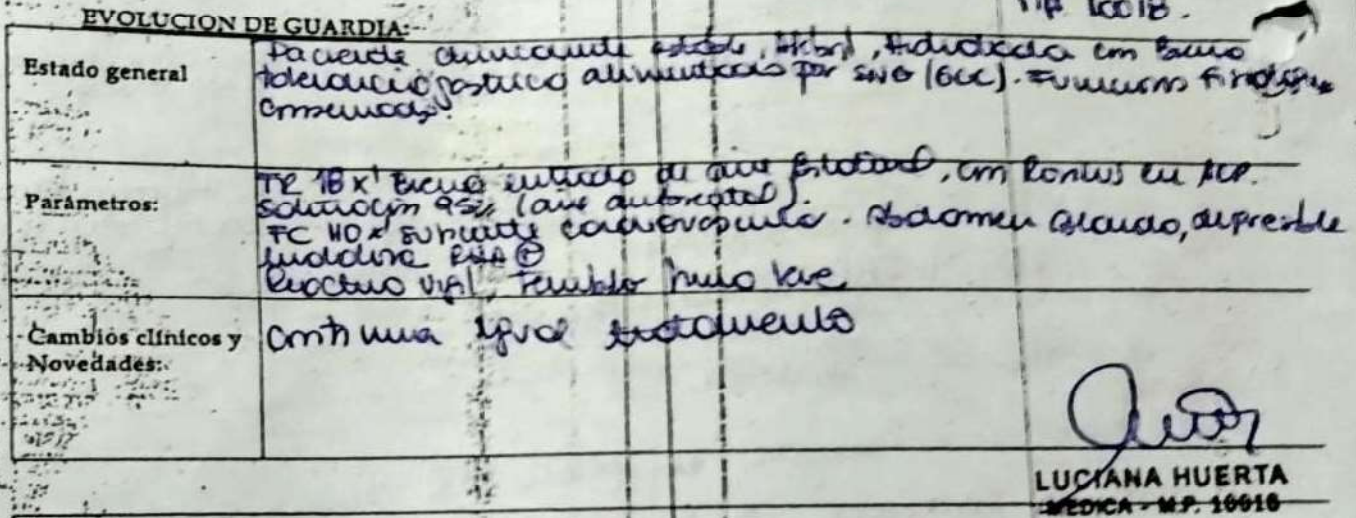 MP 10018.
EVOLUCION DE GUARDIA:
Estado general
Paciente clinicamente estable, afebril, hidratada con buena
tolerancia gastrica alimentacion por SNG (GCC). Funciones
conservadas.
Parámetros:
FR 18 x' buena entrada de aire bilateral, con Roncus en ACP.
saturacion 95% (aire ambiental).
FC 110 x' suficiente cardiovascular. Abdomen blando, depresible
indolora RHA ⊕
Reactivo vigil, Temblor leve
Cambios clínicos y
Novedades:
Continua igual tratamiento
LUCIANA HUERTA
MEDICA - M.P. 10018